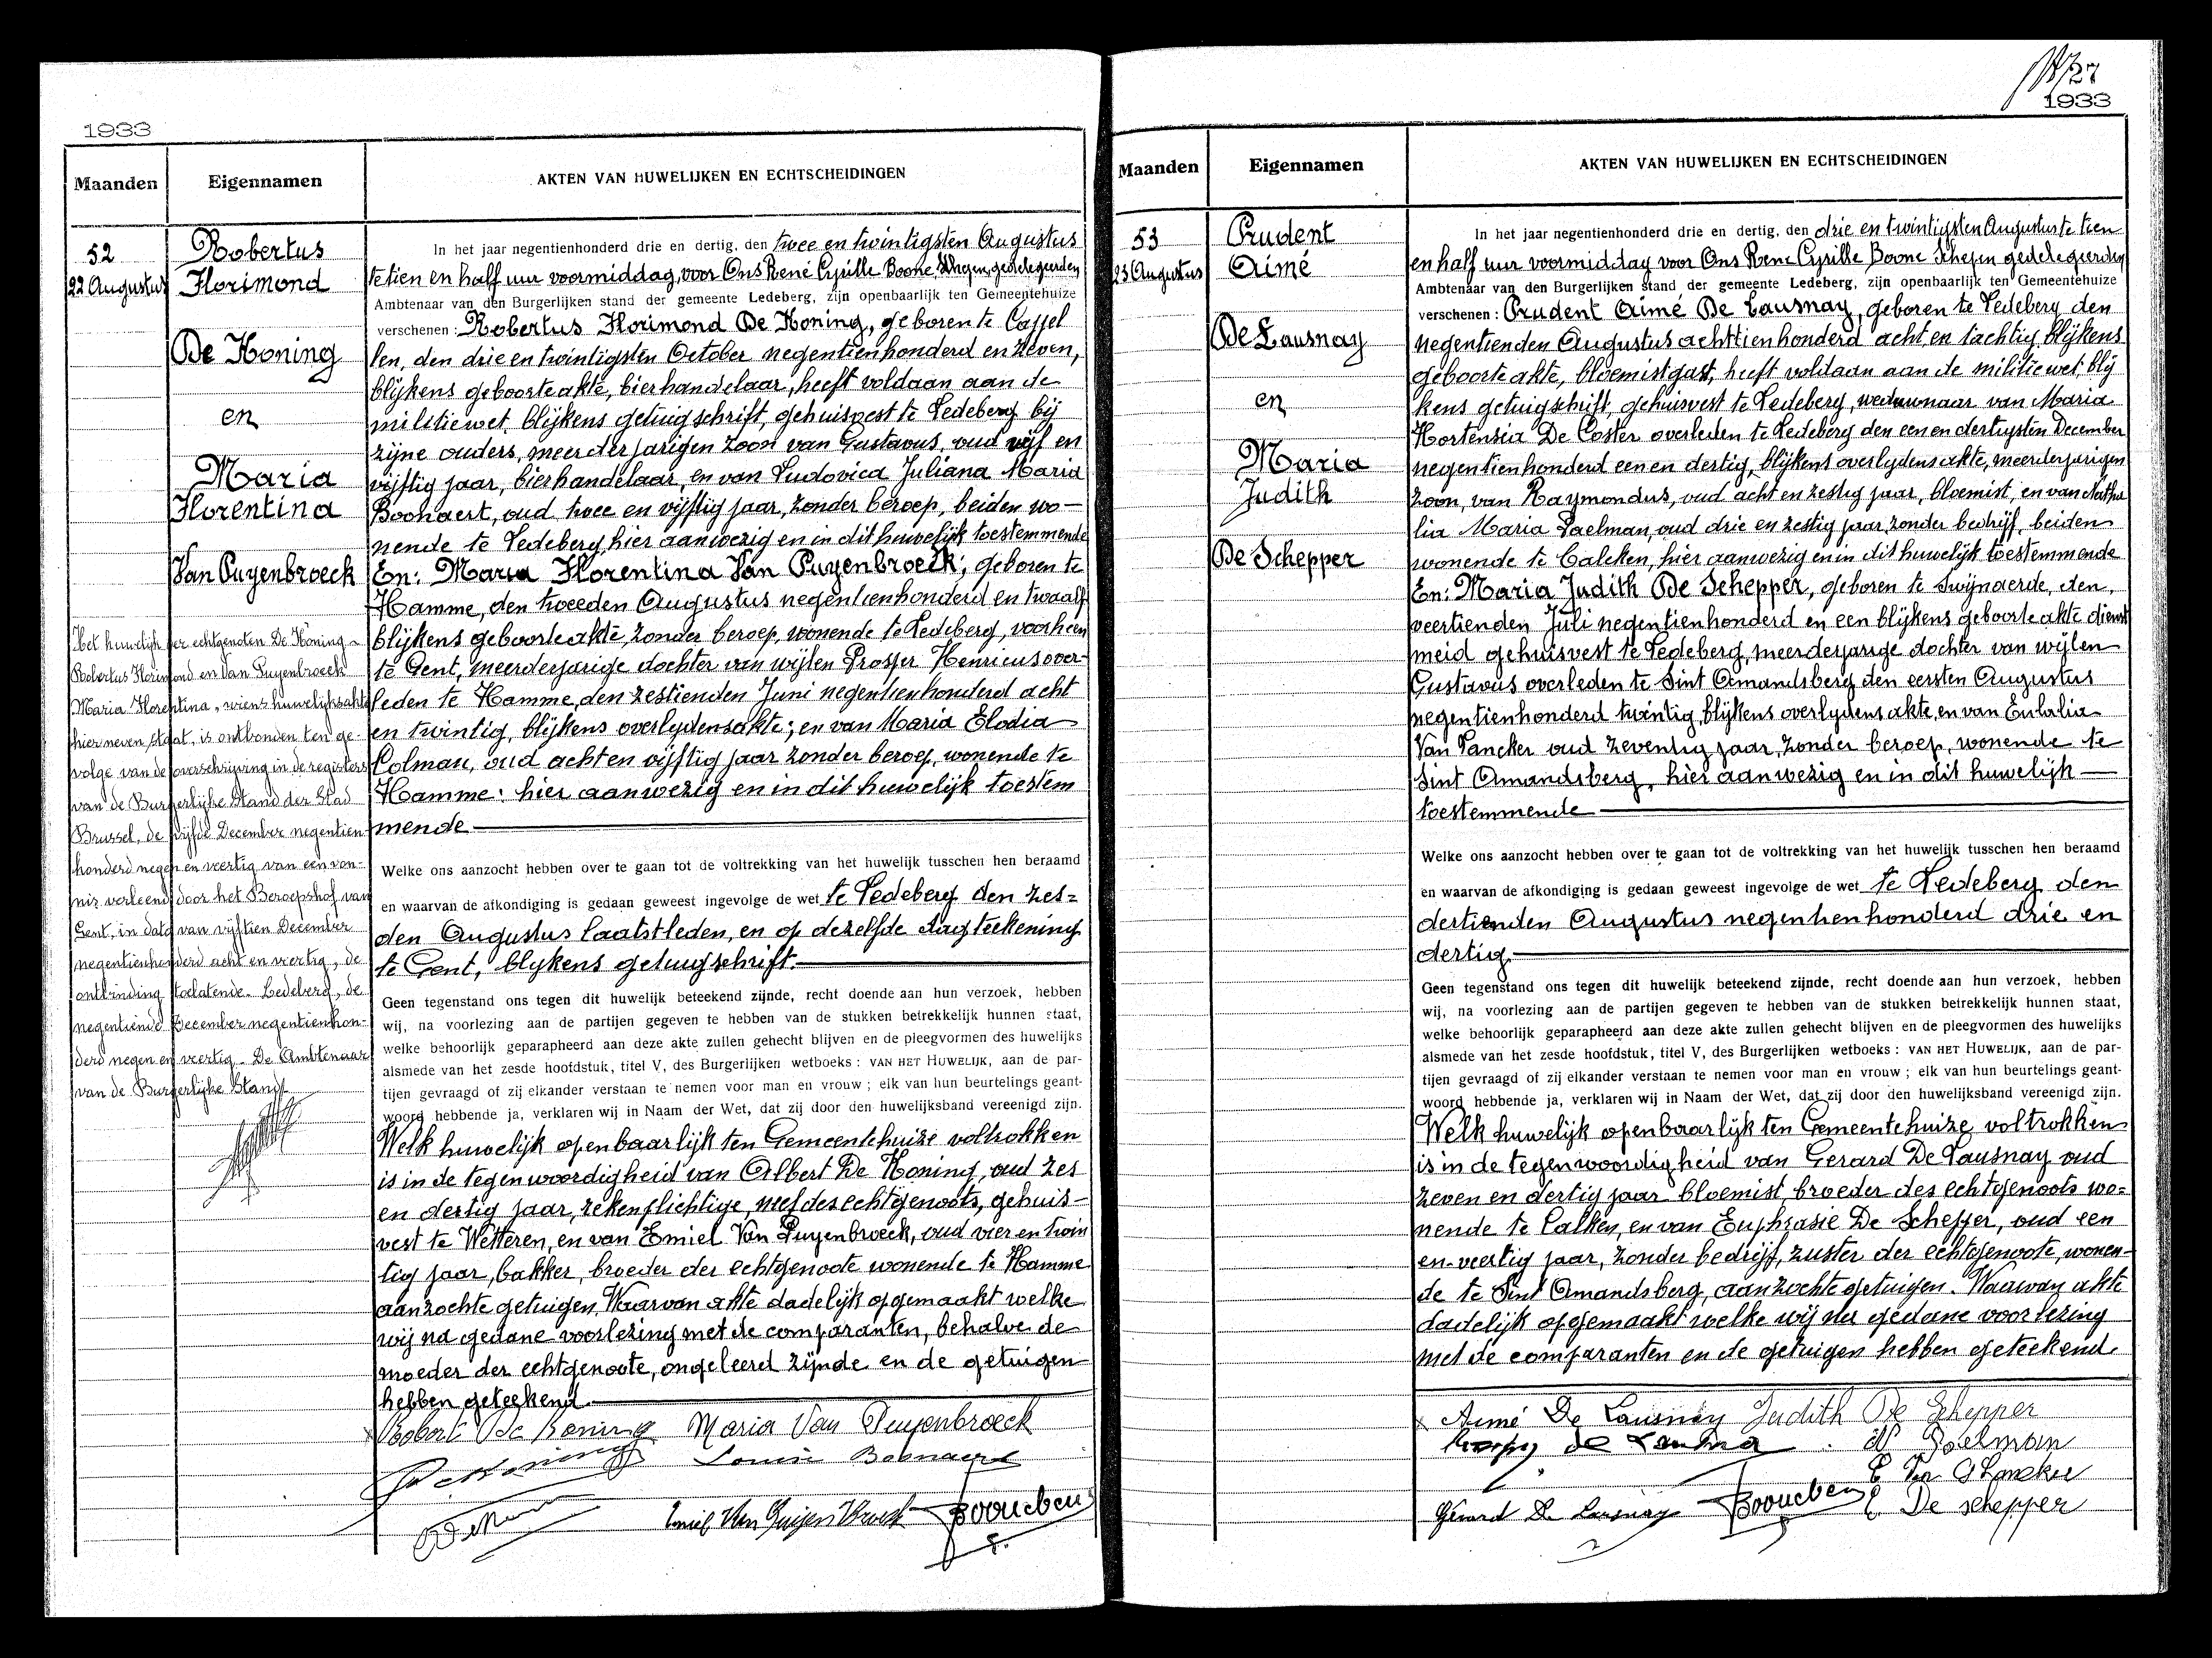 1933
Maanden Eigennamen AKTEN VAN HUWELIJKEN EN ECHTSCHEIDINGEN
52
22 Augustus
Robertus
Florimond
De Koning
en
Maria
Florentina
Van Puyenbroeck
In het jaar negentienhonderd drie en dertig, den twee en twintigsten Augustus
te tien en half uur voormiddag, voor Ons René Cyrille Boone, Schepen, gedelegeerden
Ambtenaar van den Burgerlijken stand der gemeente Ledeberg, zijn openbaarlijk ten Gemeentehuize
verschenen: Robertus Florimond De Koning, geboren te Cassel
len, den drie en twintigsten October negentienhonderd en zeven,
blijkens geboorteakte, bierhandelaar, heeft voldaan aan de
militiewet, blijkens getuigschrift, gehuisvest te Ledeberg bij
zijne ouders, meerderjarigen zoon van Gustavus, oud vijf en
vijftig jaar, bierhandelaar, en van Ludovica Juliana Maria
Boonaert, oud twee en vijftig jaar, zonder beroep, beiden wo-
nende te Ledeberg hier aanwezig en in dit huwelijk toestemmende
En: Maria Florentina Van Puyenbroeck; geboren te
Hamme, den tweeden Augustus negentienhonderd en twaalf
blijkens geboorteakte, zonder beroep, wonende te Ledeberg, voorheen
te Gent, meerderjarige dochter van wijlen Prosper Henricus over-
leden te Hamme, den zestienden Juni negentienhonderd acht
en twintig, blijkens overlydensakte; en van Maria Elodia
Colman, oud acht en vijftig jaar zonder beroep, wonende te
Hamme: hier aanwezig en in dit huwelijk toestem
mende
Welke ons aanzocht hebben over te gaan tot de voltrekking van het huwelijk tusschen hen beraamd
en waarvan de afkondiging is gedaan geweest ingevolge de wet te Ledeberg den zes=
den Augustus laatstleden, en op dezelfde dagteekening
te Gent, blykens getuigschrift.
Geen tegenstand ons tegen dit huwelijk beteekend zijnde, recht doende aan hun verzoek, hebben
wij, na voorlezing aan de partijen gegeven te hebben van de stukken betrekkelijk hunnen staat,
welke behoorlijk geparapheerd aan deze akte zullen gehecht blijven en de pleegvormen des huwelijks
alsmede van het zesde hoofdstuk, titel V, des Burgerlijken wetboeks: VAN HET HUWELIJK, aan de par-
tijen gevraagd of zij elkander verstaan te nemen voor man en vrouw; elk van hun beurtelings geant-
woord hebbende ja, verklaren wij in Naam der Wet, dat zij door den huwelijksband vereenigd zijn.
Welk huwelijk openbaarlijk ten Gemeentehuize voltrokken
is in de tegenwoordigheid van Albert De Koning, oud zes
en dertig jaar, rekenplichtige, neef des echtgenoots, gehuis-
vest te Wetteren, en van Emiel Van Puyenbroeck, oud vier en twin
tig jaar, bakker, broeder der echtgenoote wonende te Hamme
aanzochte getuigen. Waarvan akte dadelijk opgemaakt welke
wij na gedane voorlezing met de comparanten, behalve de
moeder der echtgenoote, ongeleerd zijnde en de getuigen
hebben geteekend
Robert De Koning Maria Van Puyenbroeck
De Koning Louise Boonaert
Emiel Van Puijenbroeck
Het huwelijk der echtgenoten De Koning
Robertus Florimond en Van Puyenbroeck
Maria Florentina, wiens huwelijksakte
hierneven staat, is ontbonden ten ge-
volge van de overschrijving in de registers
van de Burgerlijke Stand der Stad
Brussel, de vijfde December negentien
honderd negen en veertig van een von-
nis verleend door het Beroepshof van
Gent, in dato van vijftien December
negentienhonderd acht en veertig, de
ontbinding toelatende. Ledeberg, de
negentiende December negentienhon-
derd negen en veertig. De Ambtenaar
van de Burgerlijke Stand
27
1933
Maanden Eigennamen AKTEN VAN HUWELIJKEN EN ECHTSCHEIDINGEN
53
23 Augustus
Prudent
Aimé
De Lausnay
en
Maria
Judith
De Schepper
In het jaar negentienhonderd drie en dertig, den drie en twintigsten Augustus te tien
en half uur voormiddag voor Ons René Cyrille Boone Schepen gedelegeerden
Ambtenaar van den Burgerlijken stand der gemeente Ledeberg, zijn openbaarlijk ten Gemeentehuize
verschenen: Prudent Aimé De Lausnay, geboren te Ledeberg den
negentienden Augustus achttienhonderd acht en tachtig, blijkens
geboorteakte, bloemistgast, heeft voldaan aan de militiewet, blij
kens getuigschrift, gehuisvest te Ledeberg, weduwnaar van Maria
Hortensia De Coster overleden te Ledeberg den een en dertigsten December
negentienhonderd een en dertig, blijkens overlydensakte, meerderjarigen
zoon, van Raymondus, oud acht en zestig jaar, bloemist, en van Natha
lia Maria Paelman, oud drie en zestig jaar, zonder bedrijf, beiden
wonende te Calcken, hier aanwezig en in dit huwelijk toestemmende
En: Maria Judith De Schepper, geboren te Swijnaerde, den,
veertienden Juli negentienhonderd en een blijkens geboorteakte dienst
meid gehuisvest te Ledeberg, meerderjarige dochter van wijlen
Gustavus overleden te Sint Amandsberg den eersten Augustus
negentienhonderd twintig, blijkens overlydensakte, en van Eulalia
Van Lancker oud zeventig jaar, zonder beroep, wonende te
Sint Amandsberg, hier aanwezig en in dit huwelijk
toestemmende
Welke ons aanzocht hebben over te gaan tot de voltrekking van het huwelijk tusschen hen beraamd
en waarvan de afkondiging is gedaan geweest ingevolge de wet te Ledeberg den
dertienden Augustus negentienhonderd drie en
dertig.
Geen tegenstand ons tegen dit huwelijk beteekend zijnde, recht doende aan hun verzoek, hebben
wij, na voorlezing aan de partijen gegeven te hebben van de stukken betrekkelijk hunnen staat,
welke behoorlijk geparapheerd aan deze akte zullen gehecht blijven en de pleegvormen des huwelijks
alsmede van het zesde hoofdstuk, titel V, des Burgerlijken wetboeks: VAN HET HUWELIJK, aan de par-
tijen gevraagd of zij elkander verstaan te nemen voor man en vrouw; elk van hun beurtelings geant-
woord hebbende ja, verklaren wij in Naam der Wet, dat zij door den huwelijksband vereenigd zijn.
Welk huwelijk openbaarlijk ten Gemeentehuize voltrokken
is in de tegenwoordigheid van Gerard De Lausnay oud
zeven en dertig jaar bloemist, broeder des echtgenoots wo=
nende te Calken, en van Euphrasie De Schepper, oud een
en veertig jaar, zonder bedrijf, zuster der echtgenoote, wonen-
de te Sint Amandsberg, aanzochte getuigen. Waarvan akte
dadelijk opgemaakt welke wij na gedane voorlezing
met de comparanten en de getuigen hebben geteekend.
Aimé De Lausnay Judith De Schepper
N Poelman
E Van Lancker
Gérard De Lausnay E De schepper